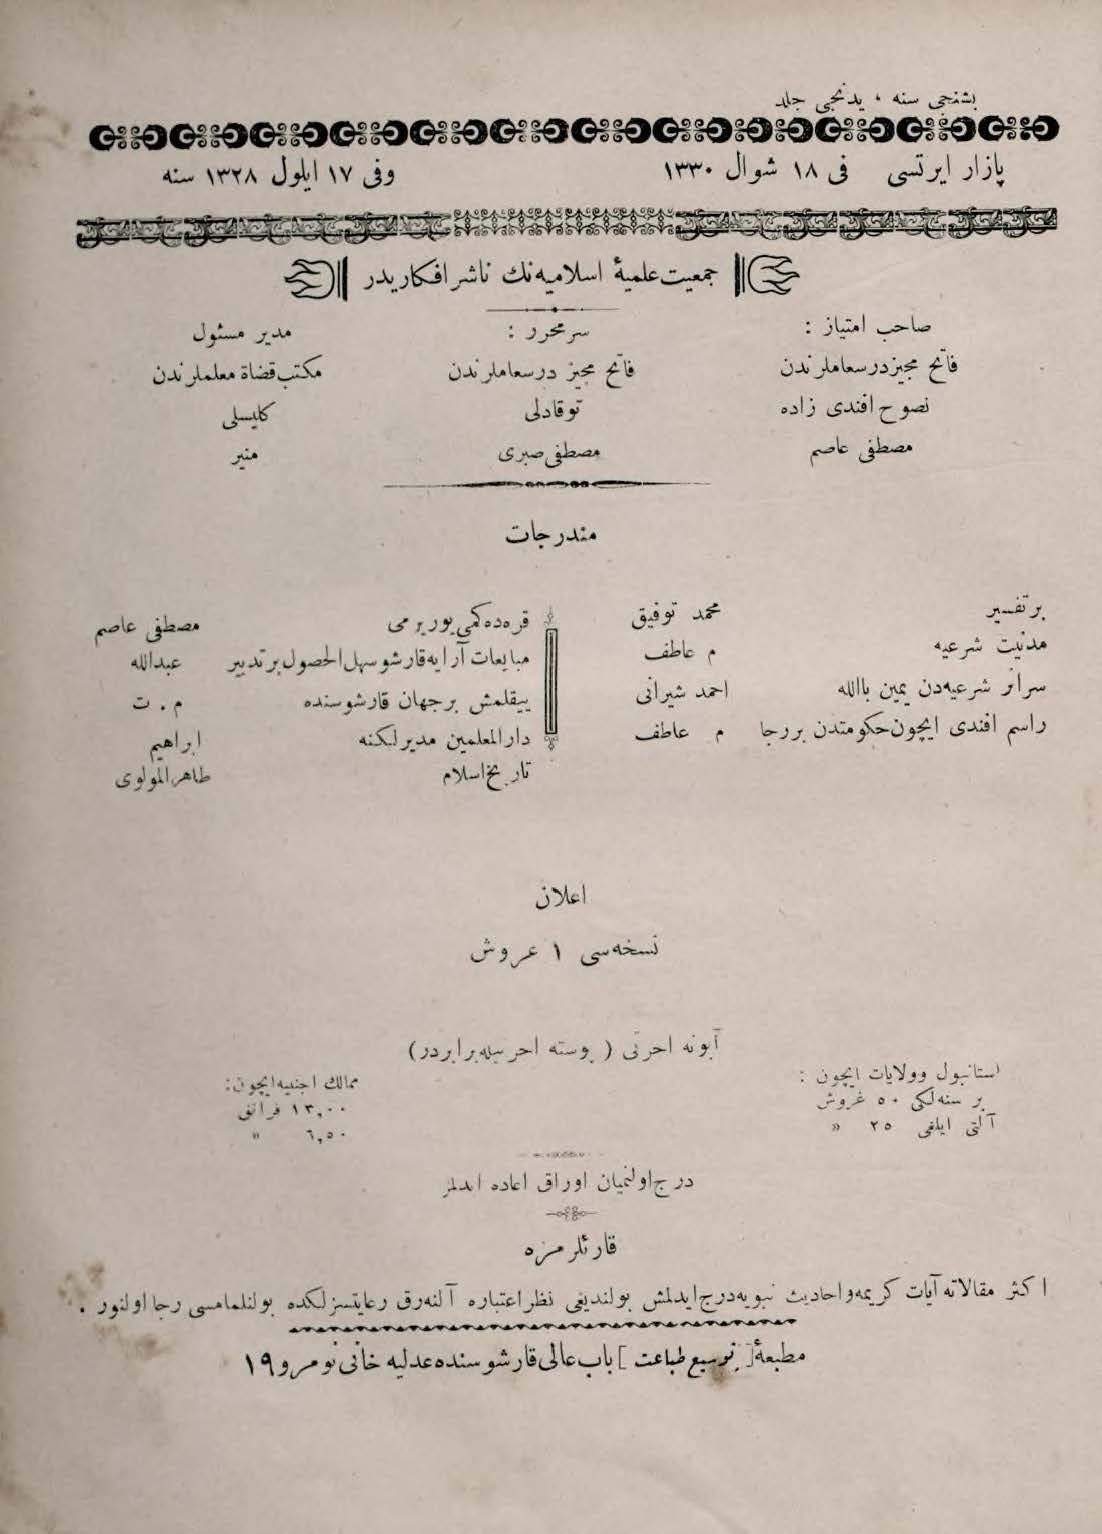 بشنجی سنه ، یدنجی جلد
پازار ایرتسی فی ١٨ شوال ١٣٣٠ وفی ١٧ ایلول ١٣٢٨ سنه
جمعیت علمیهٔ اسلامیه نك ناشر افكاریدر
صاحب امتیاز :
فاتح مجیز درسعاملرندن
نصوح افندی زاده
مصطفی عاصم
سر محرر :
فاتح مجیز درسعاملرندن
توقادلی
مصطفی صبری
مدیر مسئول
مكتب قضاة معلملرندن
كلیسلی
منیر
مندرجات
بر تفسیر محمد توفیق
مدنیت شرعیه م عاطف
سرائر شرعیه دن یمین باالله احمد شیرانی
راسم افندی ایچون حكومتدن بر رجا م عاطف
قره ده كمی یوریرمی مصطفی عاصم
مبایعات آرایه قارشو سهل الحصول بر تدبیر عبدالله
ییقلمش بر جهان قارشوسنده م . ت
دار المعلمین مدیرلكنه ابراهیم
تاریخ اسلام طاهر المولوی
اعلان
نسخه سی ١ غروش
آبونه اجرتی ( پوسته اجرتیله برابردر )
استانبول وولایات ایچون :
بر سنه لكی ٥٠ غروش
آلتی ایلغی ٢٥ »
ممالك اجنبیه ایچون :
١٣,٠٠ فرانق
٦,٥٠ »
درج اولنمیان اوراق اعاده ایدلمز
قارئلرمزه
اكثر مقالاته آیات كریمه و احادیث نبویه درج ایدلمش بولندیغی نظر اعتباره آلنه رق رعایتسزلكده بولنلمامسی رجا اولنور .
مطبعهٔ [ توسیع طباعت ] باب عالی قارشوسنده عدلیه خانی نومرو ١٩